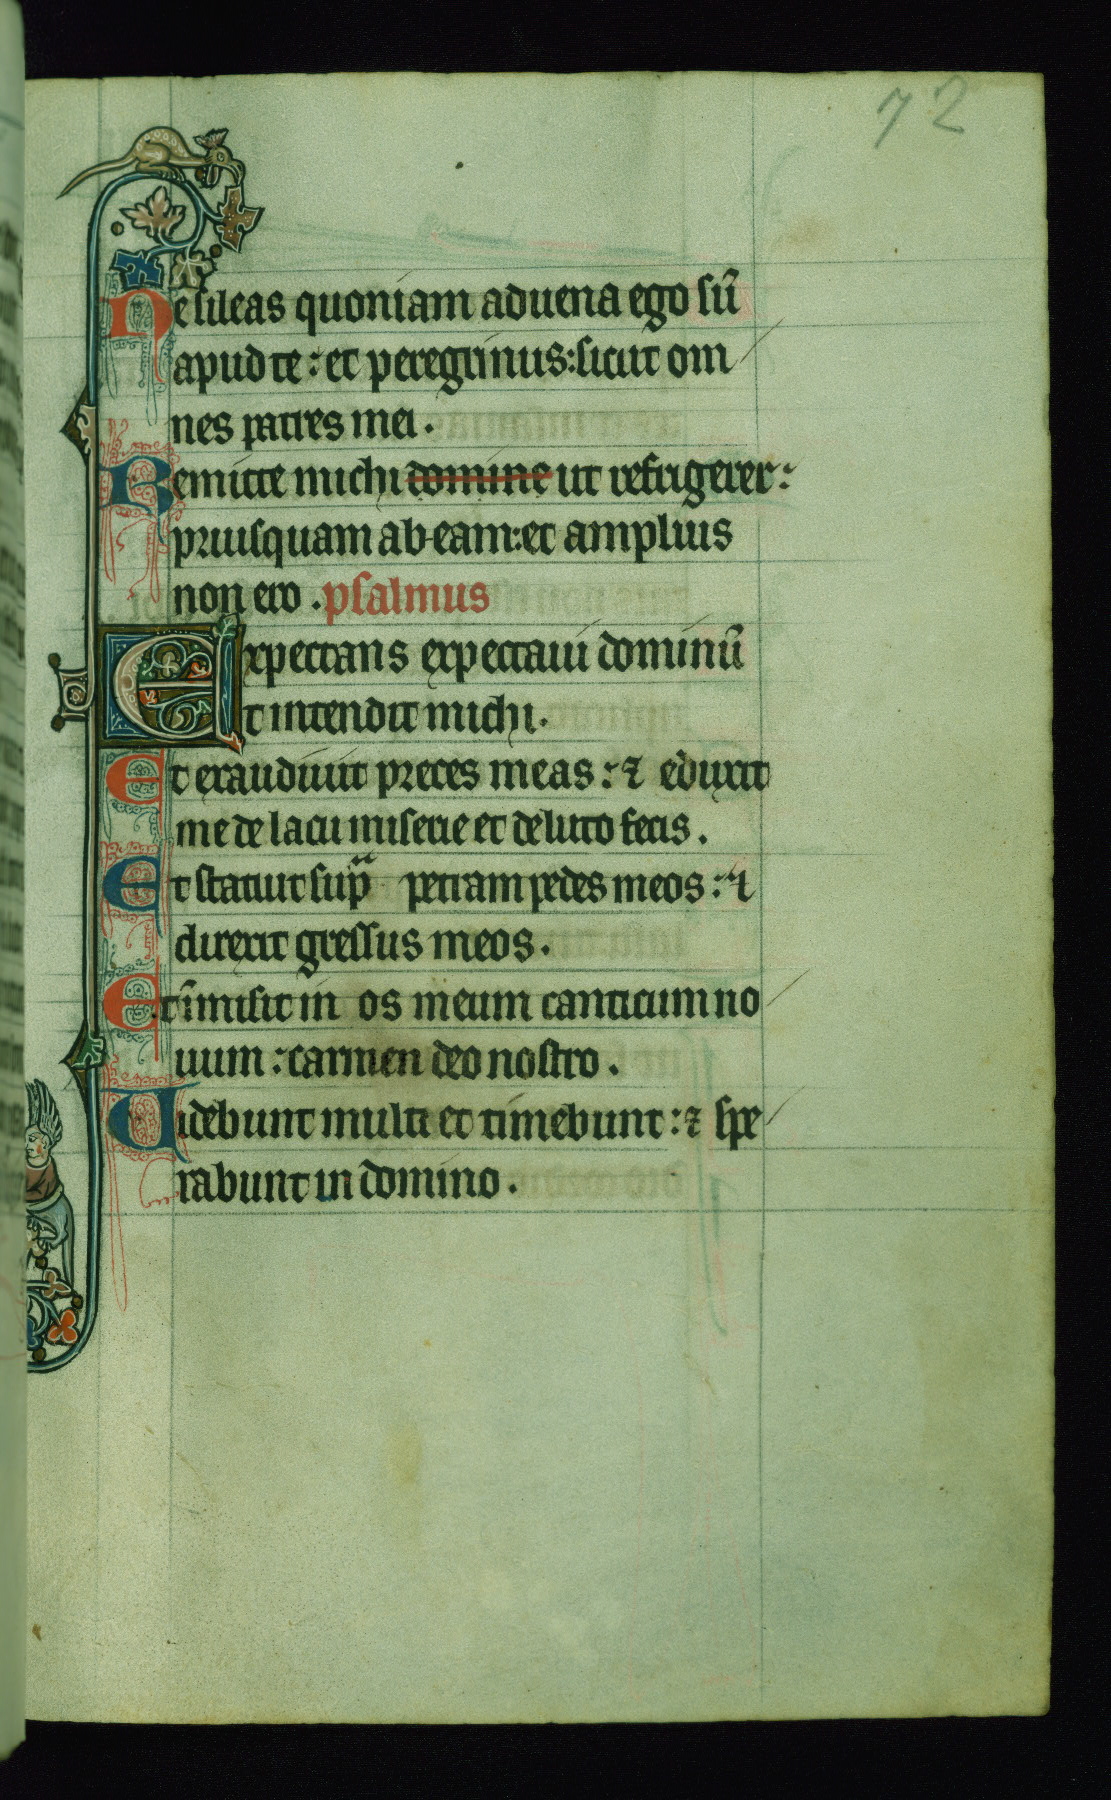 72
Ne sileas quoniam aduena ego sū
apud te : et peregrinus : sicut om
nes patres mei .
Remitte michi domine ut refrigerer :
priusquam ab-eam : et amplius
non ero . psalmus
Expectans expectaui dominū
et intendit michi .
Et exaudiuit preces meas : ⁊ eduxit
me de lacu miserie et de luto fecis .
Et statuit supᵃ petram pedes meos : ⁊
direxit gressus meos .
Et īmisit in os meum canticum no
uum : carmen deo nostro .
Uidebunt multi et timebunt : ⁊ spe
rabunt in domino .